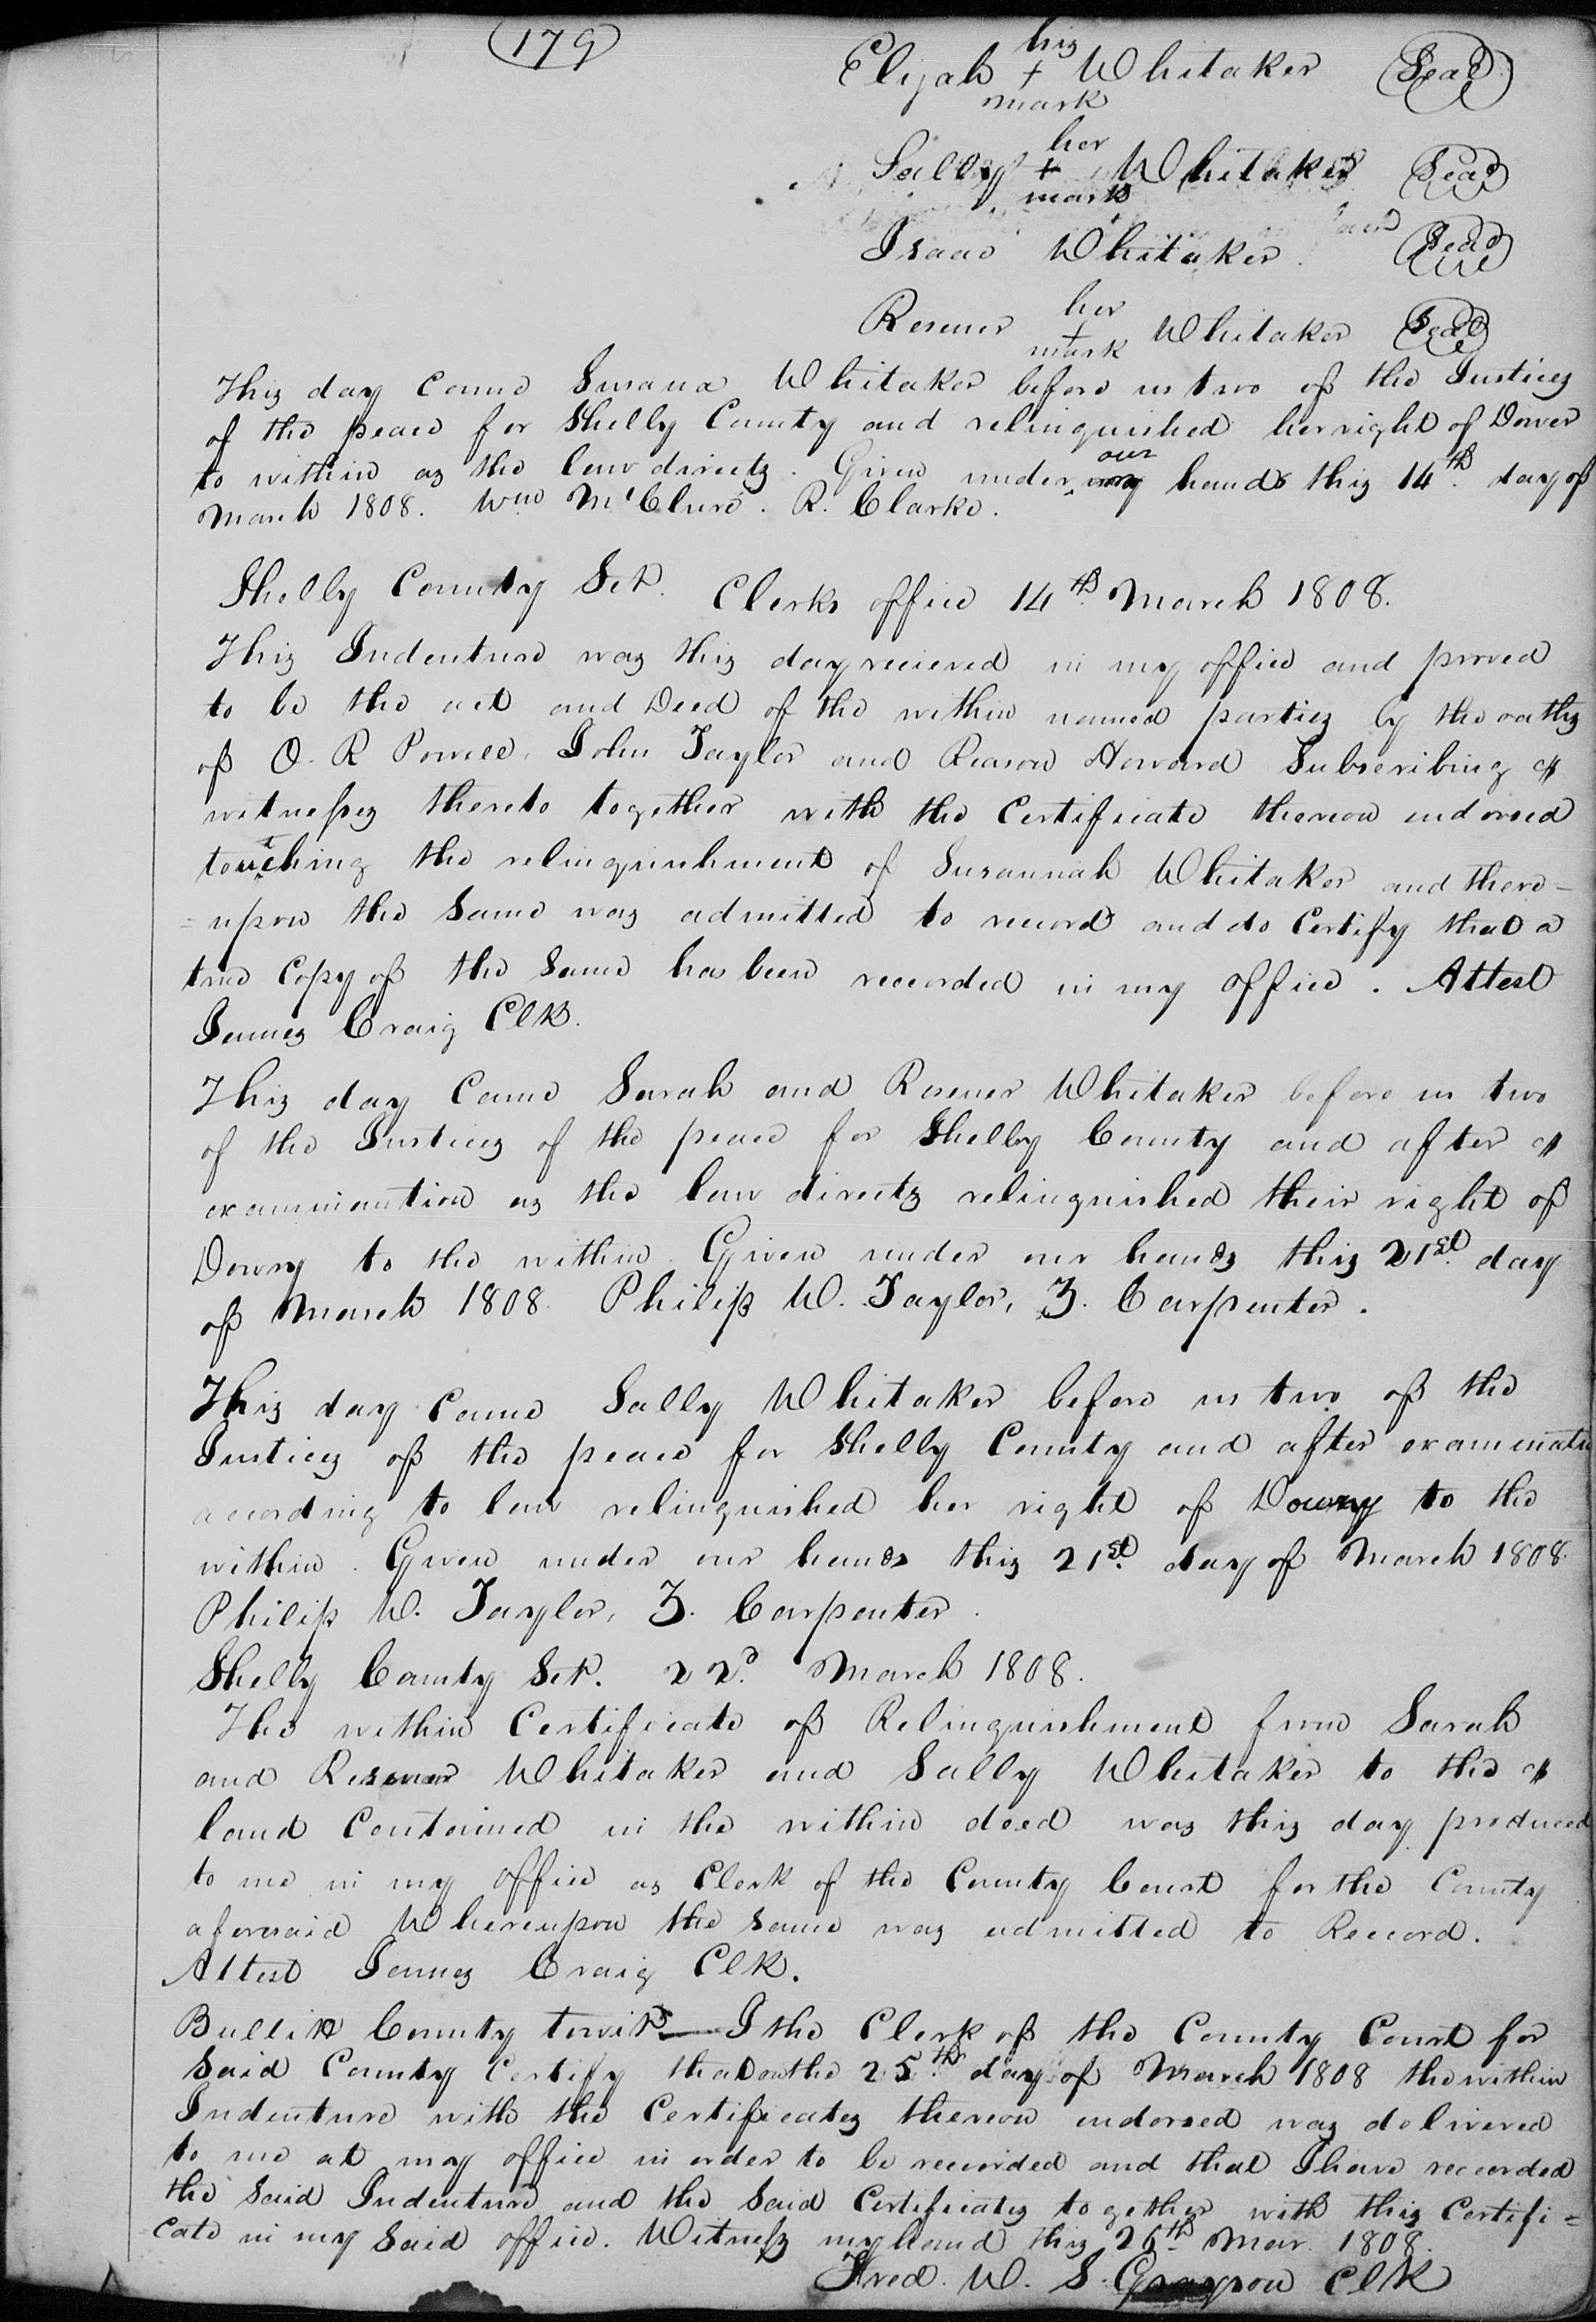 179
his
Elijah + Whitaker Seal
mark
her
Sally + Whitaker Seal
mark
Isaac Whitaker Seal
her
Resener + Whitaker Seal
mark
This day came Susana Whitaker before us two of the Justices
of the peace for Shelby County and relinquished her right of Dower
to within as the law directs. Given under our hands this 14th day of
March 1808. Wm McClure. R. Clarke.
Shelby County Sct. Clerks office 14th March 1808.
This Indenture was this day recieved in my office and proved
to be the act and Deed of the within named parties by the oaths
of O. R Powell, John Taylor and Reason Howard Subscribing
witnesses thereto together with the Certificate thereon endorsed
touching the relinquishment of Susannah Whitaker and there-
=upon the Same was admitted to record and do Certify that a
true Copy of the Same has been recorded in my office. Attest
James Craig Clk.
This day Came Sarah and Resener Whitaker before us two
of the Justices of the peace for Shelby County and after
examination as the law directs relinquished their right of
Dowry to the within. Given under our hands this 21st day
of March 1808. Philip W. Taylor, Z. Carpenter.
This day came Sally Whitaker before us two of the
Justices of the peace for Shelby County and after examinatn
according to law relinquished her right of Dowry to the
within. Given under our hands this 21st day of March 1808.
Philip W. Taylor, Z. Carpenter.
Shelby County Sct. 22d March 1808.
The within Certificate of Relinquishment from Sarah
and Resener Whitaker and Sally Whitaker to the
land Contained in the within deed was this day produced
to me in my office as Clerk of the County Court for the County
aforesaid Whereupon the same was admitted to Record.
Attest James Craig Clk.
Bullitt County towit— I the Clerk of the County Court for
Said County Certify that on the 25th day of March 1808 the within
Indenture with the Certificates thereon endorsed was delivered
to me at my office in order to be recorded and that I have recorded
the Said Indenture and the Said Certificates together with this Certifi=
cate in my Said office. Witness my hand this 26th Mar. 1808.
Fred. W. S. Grayson Clk